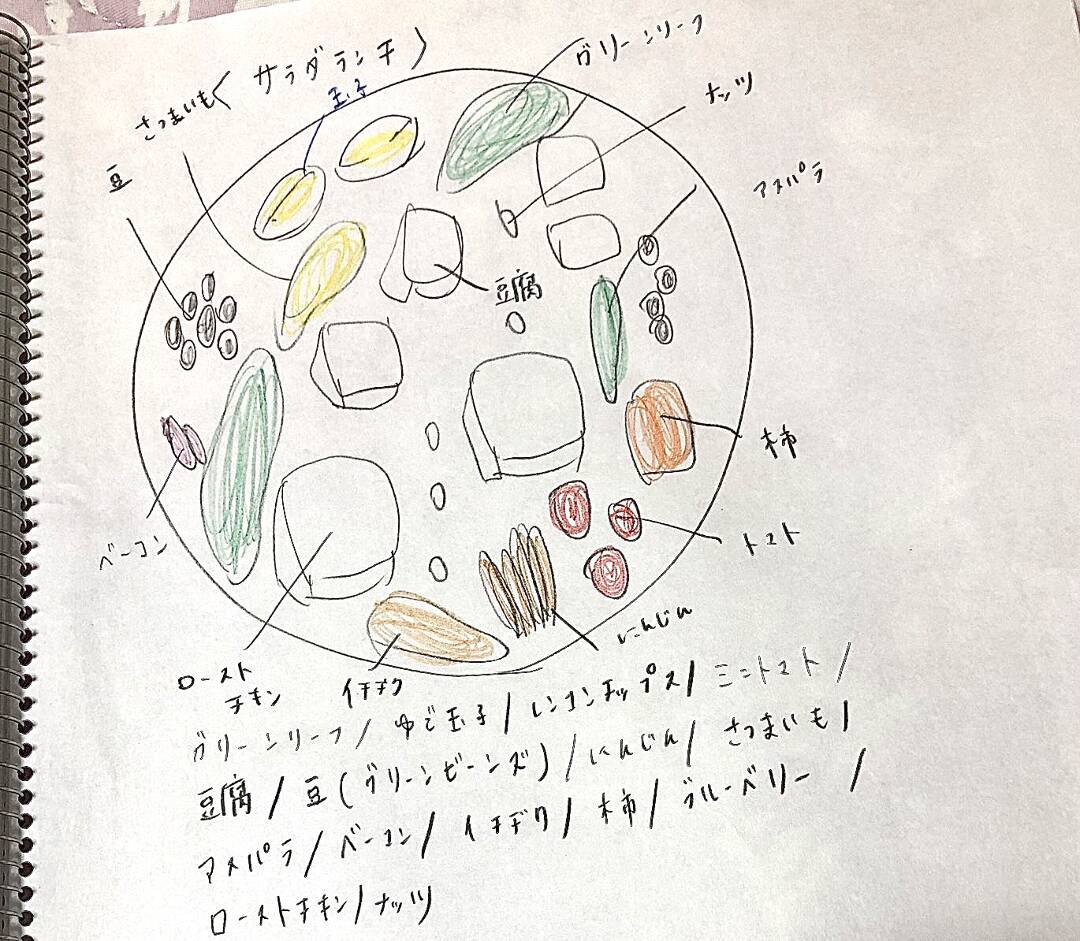 〈サラダランチ〉
グリーンリーフ
玉子
ナッツ
さつまいも
豆
アスパラ
豆腐
柿
トマト
ベーコン
にんじん
ロースト
チキン
イチヂク
グリーンリーフ/ゆで玉子/レンコンチップス/ミニトマト/
豆腐/豆(グリーンビーンズ)/にんじん/さつまいも/
アスパラ/ベーコン/イチヂク/柿/ブルーベリー/
ローストチキン/ナッツ